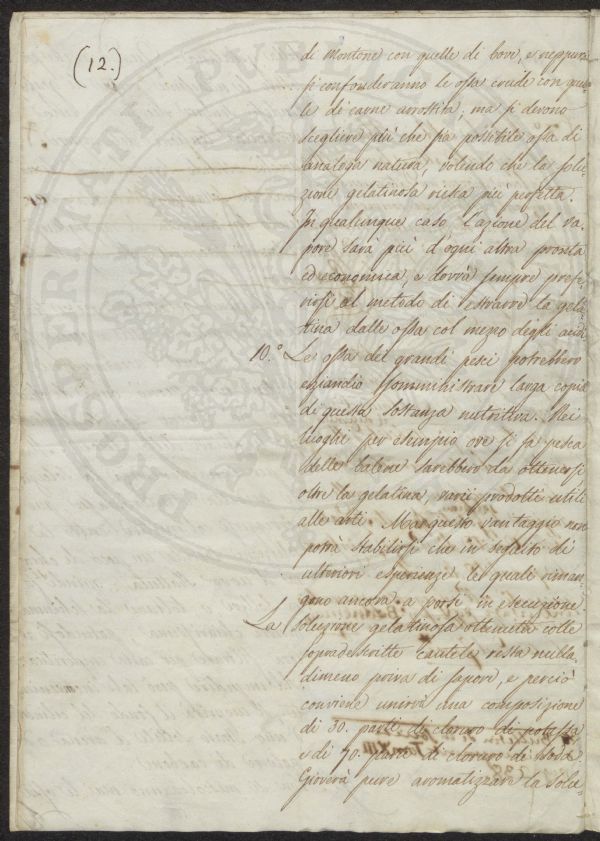 (12.)
di montone con quelle di bove, e neppure
si confonderanno le ossa crude con quel-
le di carne arrostita; ma si devono
scegliere più che sia possibile ossa di
analoga natura, volendo che la solu-
zione gelatinosa riesca più perfetta.
In qualunque caso l'azione del va-
pore sarà più d'ogni altra pronta
ed economica, e dovrà sempre prefe-
rirsi al metodo di estrarre la gela-
tina dalle ossa col mezzo degli acidi
10.° Le ossa dei grandi pesci potrebbero
eziandio somministrare larga copia
di questa sostanza nutritiva. Nei
luoghi per esempio ove si fa pesca
delle balene sarebbero da ottenersi
oltre la gelatina, varii prodotti utili
alle arti. Ma questo vantaggio non
potrà stabilirsi che in seguito di
ulteriori esperienze le quali riman-
gono ancora a porsi in esecuzione.
La soluzione gelatinosa ottenuta colle
sopradescritte cautele resta nulla-
dimeno priva di sapore, e perciò
conviene unirvi una composizione
di 30. parti di cloruro di potassa
e di 70. parti di cloruro di soda.
Gioverà pure aromatizzare la solu-
PROSPERITATI PUBLICAE